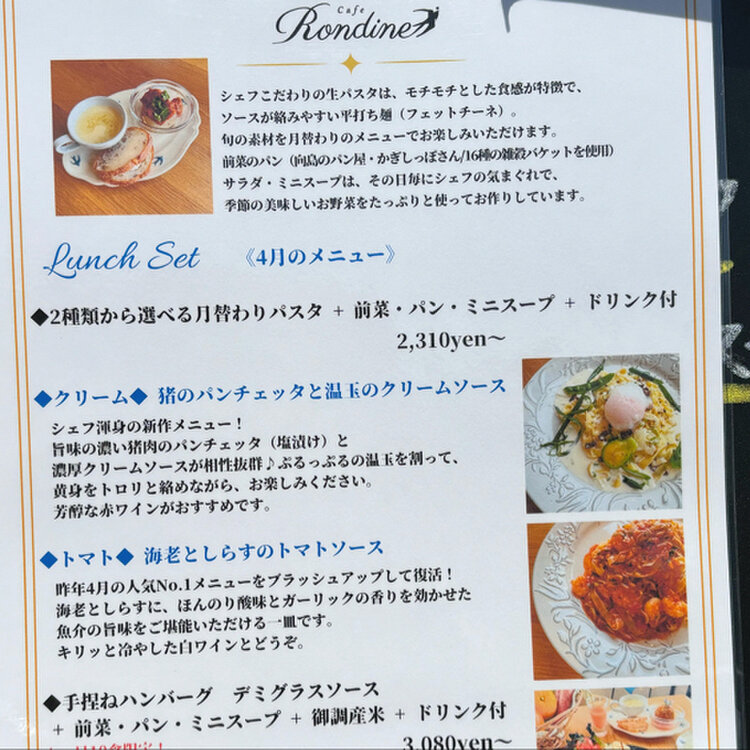 Cafe
Rondine
シェフこだわりの生パスタは、モチモチとした食感が特徴で、
ソースが絡みやすい平打ち麺（フェットチーネ）。
旬の素材を月替わりのメニューでお楽しみいただけます。
前菜のパン（向島のパン屋・かぎしっぽさん/16種の雑穀バケットを使用）
サラダ・ミニスープは、その日毎にシェフの気まぐれで、
季節の美味しいお野菜をたっぷりと使ってお作りしています。
Lunch Set 《4月のメニュー》
◆2種類から選べる月替わりパスタ + 前菜・パン・ミニスープ + ドリンク付
2,310yen〜
◆クリーム◆ 猪のパンチェッタと温玉のクリームソース
シェフ渾身の新作メニュー！
旨味の濃い猪肉のパンチェッタ（塩漬け）と
濃厚クリームソースが相性抜群♪ぷるっぷるの温玉を割って、
黄身をトロリと絡めながら、お楽しみください。
芳醇な赤ワインがおすすめです。
◆トマト◆ 海老としらすのトマトソース
昨年4月の人気No.1メニューをブラッシュアップして復活！
海老としらすに、ほんのり酸味とガーリックの香りを効かせた
魚介の旨味をご堪能いただける一皿です。
キリッと冷やした白ワインとどうぞ。
◆手捏ねハンバーグ デミグラスソース
+ 前菜・パン・ミニスープ + 御調産米 + ドリンク付
3,080yen〜